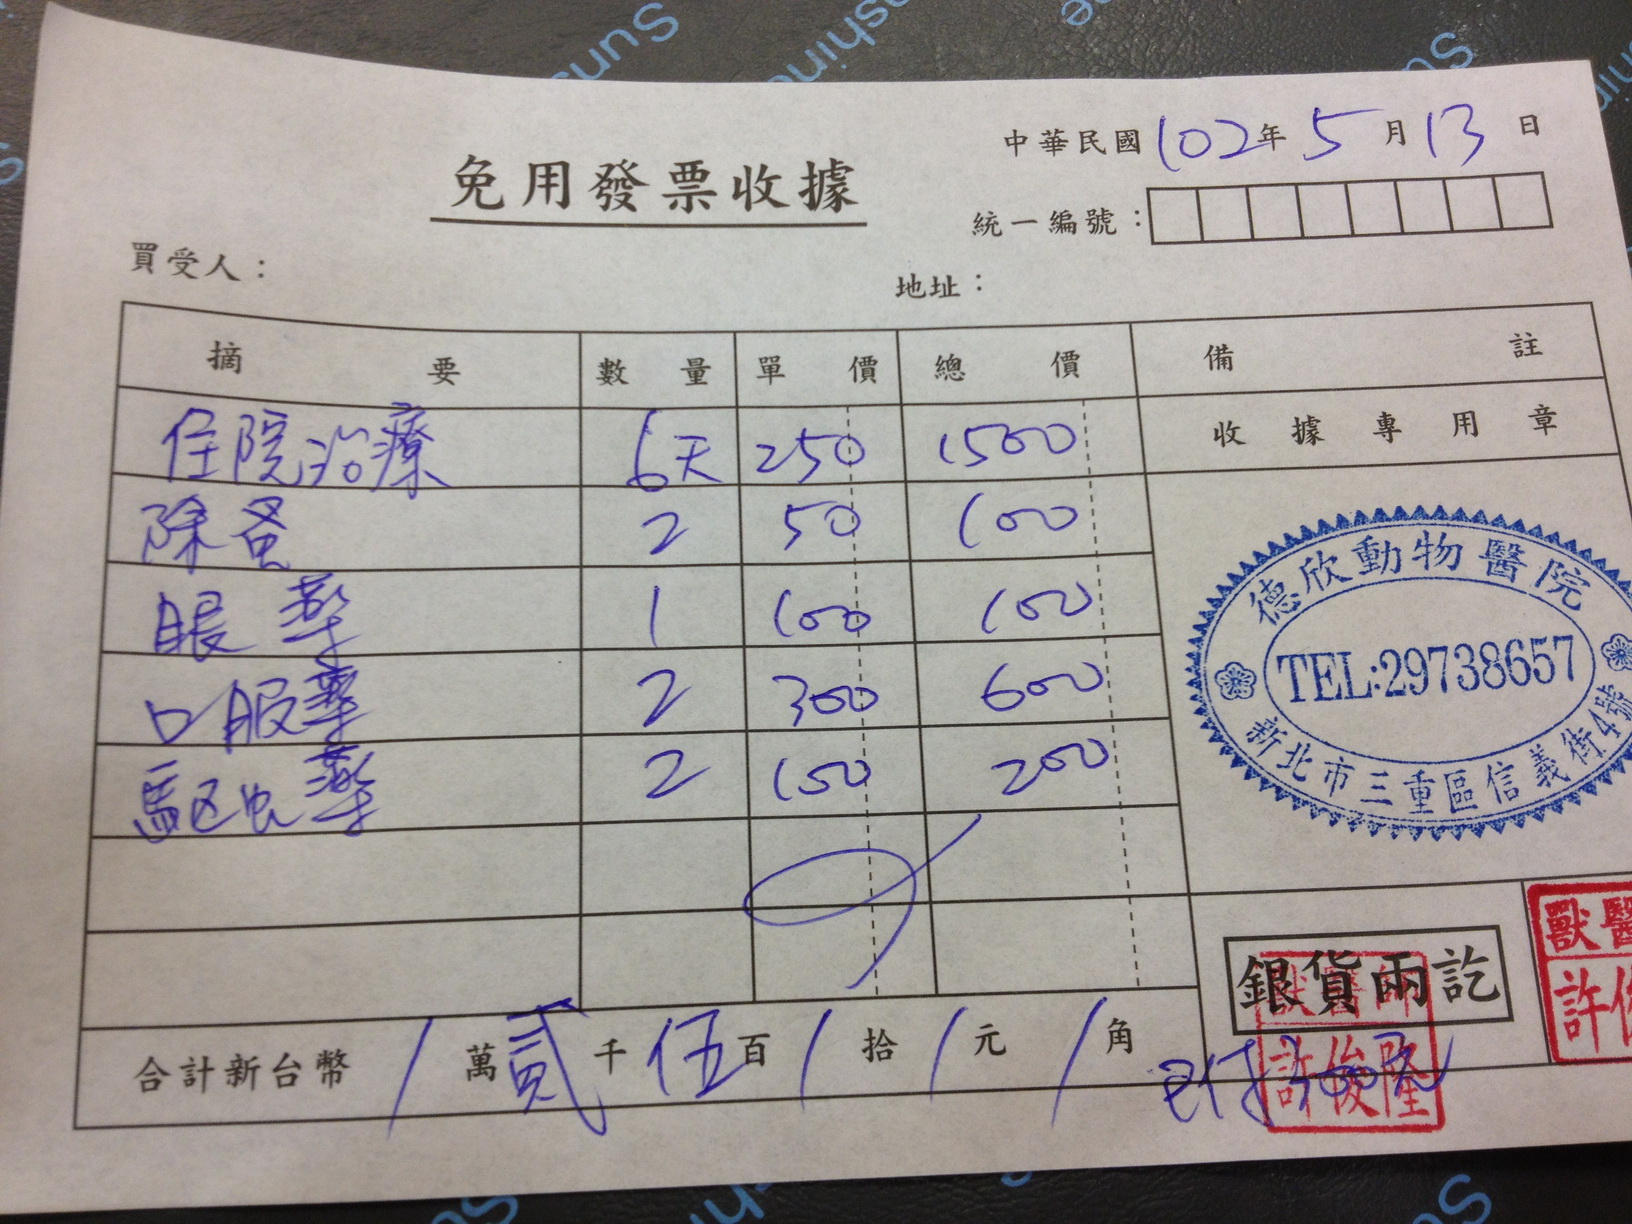 中華民國102年5月13日
免用發票收據
統一編號：
買受人：
地址：
摘要 數量 單價 總價 備註
收據專用章
住院治療 6天 250 1500
除蚤 2 50 100
眼藥 1 100 100
口服藥 2 300 600
驅虫藥 2 100 200
德欣動物醫院
TEL:29738657
新北市三重區信義街4號
銀貨兩訖
獸醫
許俊
獸醫師
許俊隆
合計新台幣 / 萬貳千伍百 / 拾 / 元 / 角
已付
Sunshine